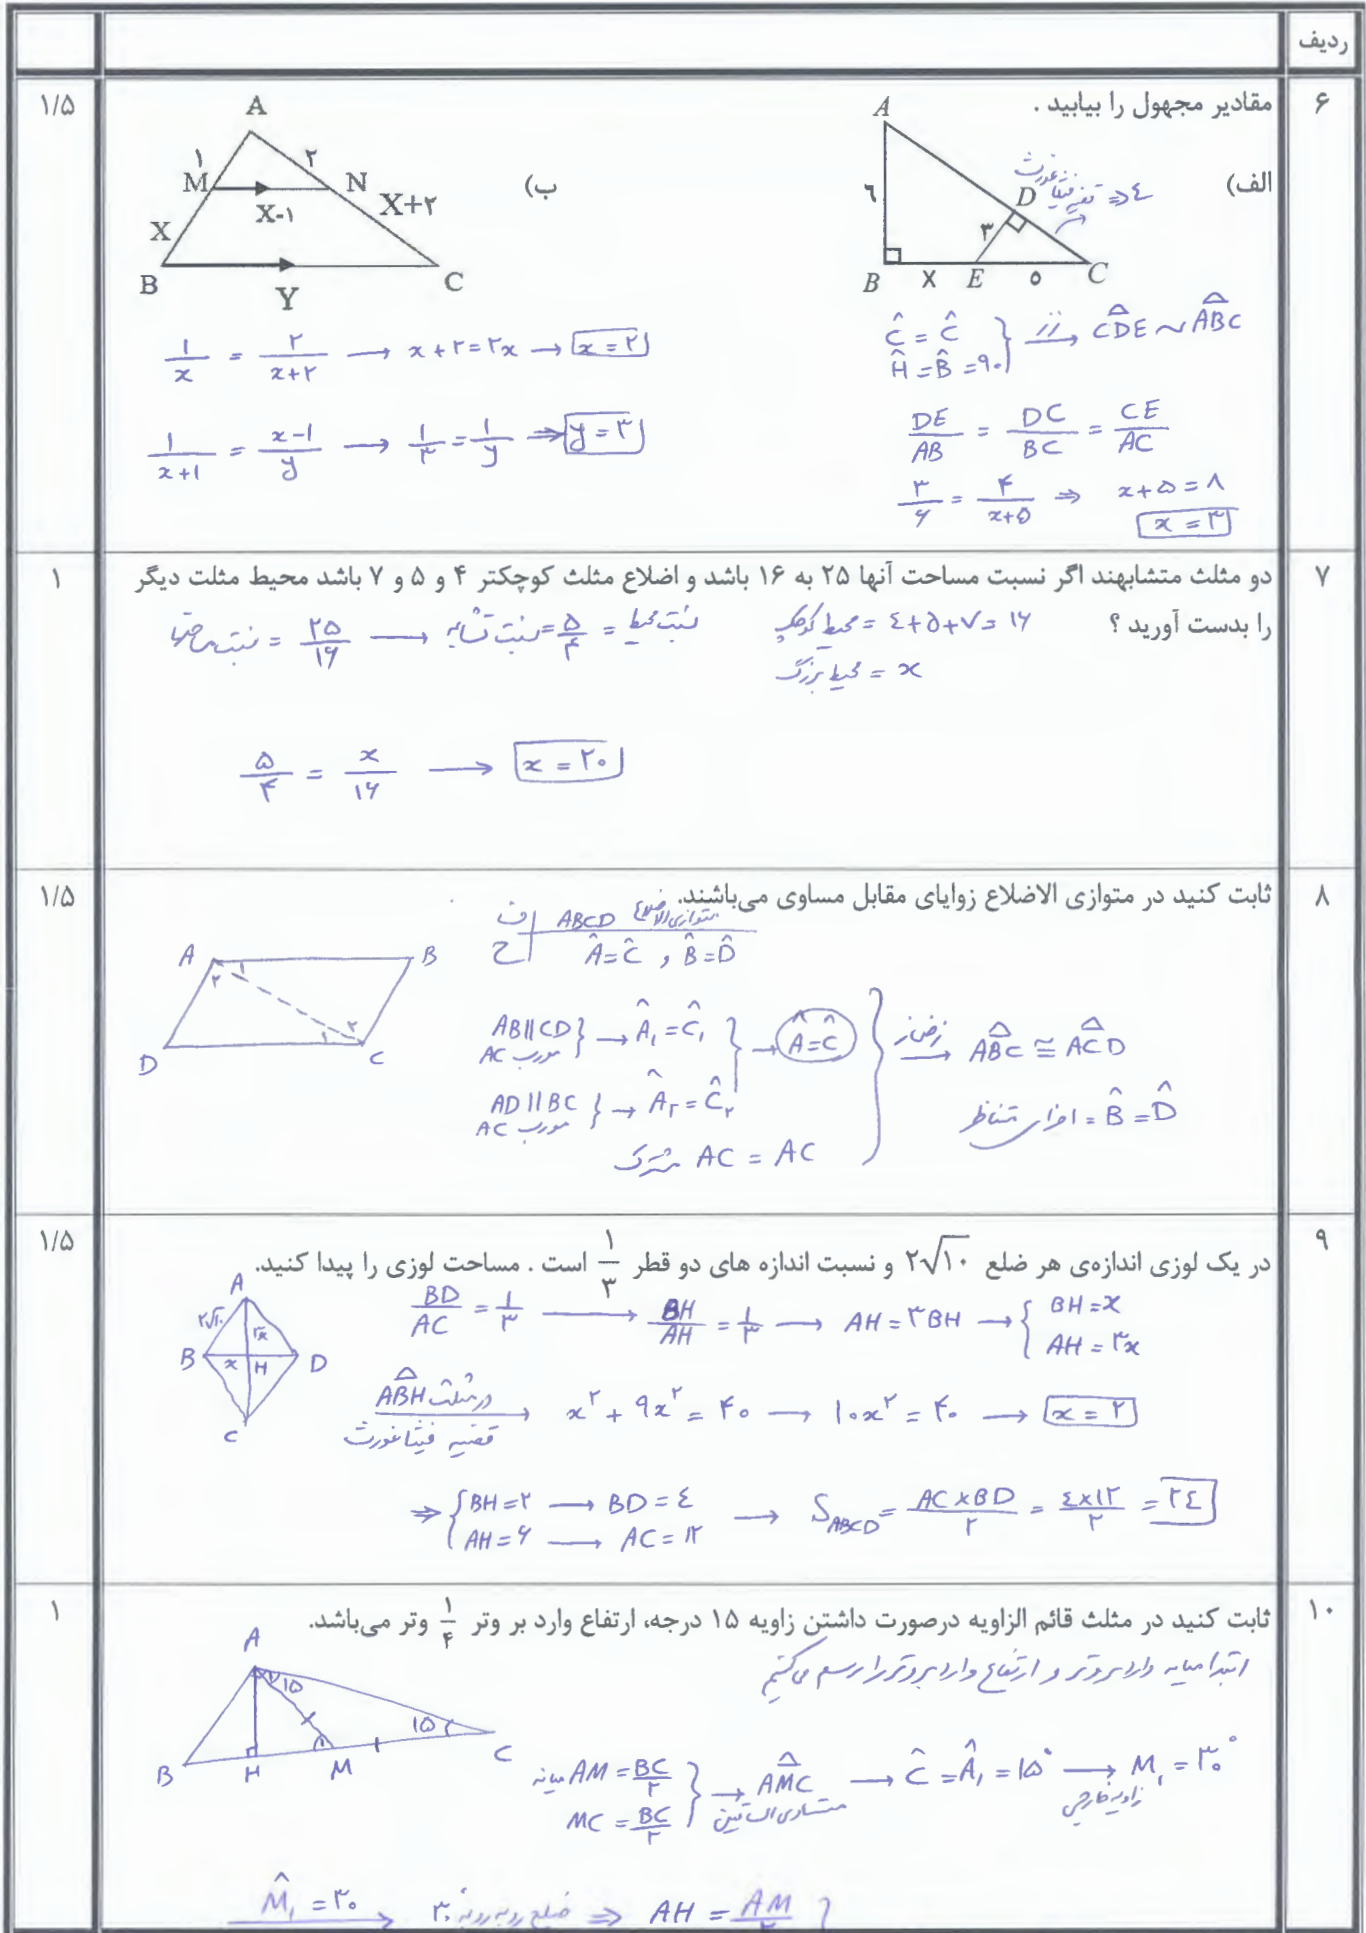 ردیف
۶
مقادیر مجهول را بیابید .
۱/۵
الف)
A
۶
D
۳
B X E ۵ C
قضیه فیثاغورث ⇒ ٤
Ĉ = Ĉ
Ĥ = B̂ = ۹۰
زز → CDE ~ ABC
DE/AB = DC/BC = CE/AC
۳/۶ = ۴/(x+۵) ⇒ x+۵ = ۸
x = ۳
ب)
A
۱ ۲
M N
X-۱ X+۲
X
B C
Y
۱/x = ۲/(x+۲) → x+۲=۲x → x=۲
۱/(x+۱) = (x-۱)/y → ۱/۳ = ۱/y ⇒ y=۳
۷
دو مثلث متشابهند اگر نسبت مساحت آنها ۲۵ به ۱۶ باشد و اضلاع مثلث کوچکتر ۴ و ۵ و ۷ باشد محیط مثلت دیگر
۱
را بدست آورید ؟
محیط کوچک = ٤+۵+۷=۱۶
محیط بزرگ = x
نسبت مساحتها = ۲۵/۱۶ → نسبت تشابه = ۵/۴ = نسبت محیط
۵/۴ = x/۱۶ → x = ۲۰
۸
ثابت کنید در متوازی الاضلاع زوایای مقابل مساوی می‌باشند.
۱/۵
ف | ABCD متوازی الاضلاع
ح | Â=Ĉ , B̂=D̂
A ۱ ۲ B
D ۱ ۲ C
AB||CD
مورب AC } → Â۱ = Ĉ۱
AD||BC
مورب AC } → Â۲ = Ĉ۲
→ Â=Ĉ
مشترک AC = AC
زض ز → ABC ≅ ACD
اجزای متناظر = B̂ = D̂
۹
در یک لوزی اندازه‌ی هر ضلع ۲√۱۰ و نسبت اندازه های دو قطر ۱/۳ است . مساحت لوزی را پیدا کنید.
۱/۵
A
۲√۱۰ ۳x
B x H D
C
BD/AC = ۱/۳ → BH/AH = ۱/۳ → AH = ۳BH → { BH=x
AH = ۳x
در مثلث ABH
قضیه فیثاغورث → x² + ۹x² = ۴۰ → ۱۰x² = ۴۰ → x = ۲
⇒ { BH=۲ → BD = ٤
AH=۶ → AC = ۱۲
→ S ABCD = AC×BD/۲ = ٤×۱۲/۲ = ۲٤
۱۰
ثابت کنید در مثلث قائم الزاویه درصورت داشتن زاویه ۱۵ درجه، ارتفاع وارد بر وتر ۱/۴ وتر می‌باشد.
۱
ابتدا میانه وارد بر وتر و ارتفاع وارد بر وتر را رسم می‌کنیم
A
۱ ۱۵
۱۵
۱
B H M C
میانه AM = BC/۲
MC = BC/۲
→ AMC متساوی الساقین → Ĉ = Â۱ = ۱۵° → M۱ = ۳۰° زاویه خارجی
M̂۱ = ۳۰ → ضلع روبه روبه ۳۰° ⇒ AH = AM/۲